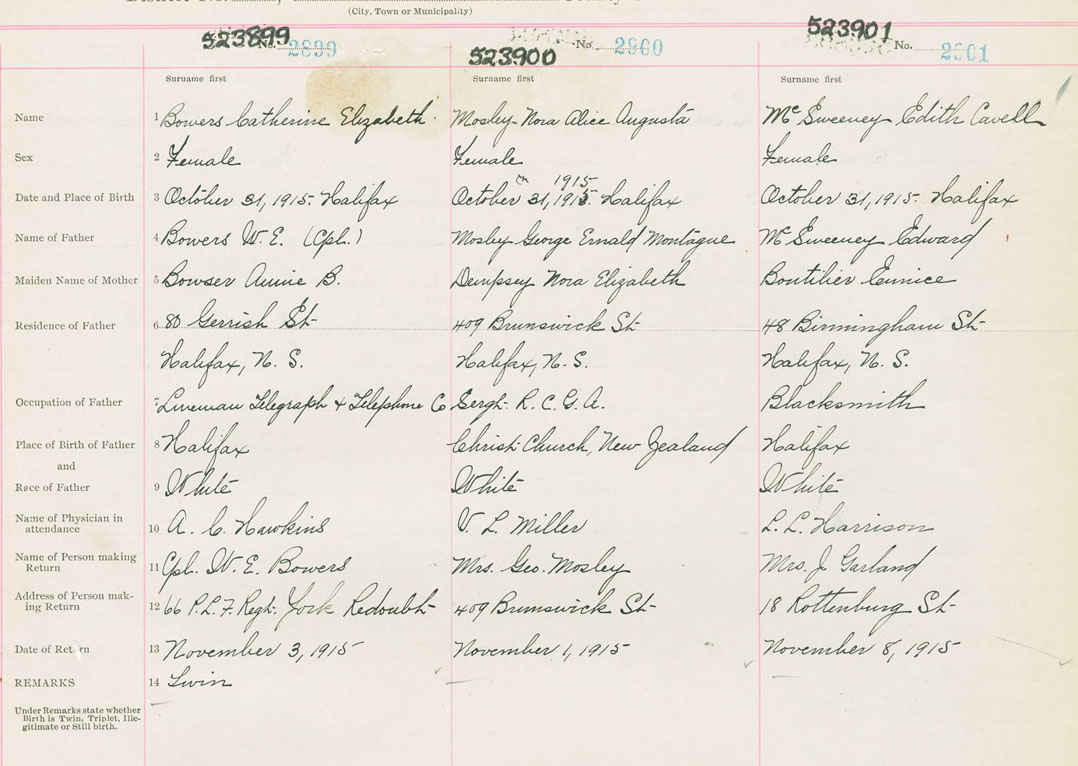 (City, Town or Municipality)
523899 No. 2899
523900 No. 2900
523901 No. 2901
Surname first Surname first Surname first
Name 1 Bowers Catherine Elizabeth Mosley Nora Alice Augusta Mc Sweeney Edith Cavell
Sex 2 Female Female Female
1915
Date and Place of Birth 3 October 31, 1915. Halifax October 31, 1915. Halifax October 31, 1915. Halifax
Name of Father 4 Bowers W. E. (Cpl.) Mosley George Ernald Montague Mc Sweeney Edward
Maiden Name of Mother 5 Bowser Annie B. Dempsey Nora Elizabeth Boutilier Eunice
Residence of Father 6 80 Gerrish St 409 Brunswick St 48 Birmingham St
Halifax, N. S. Halifax, N. S. Halifax, N. S.
Occupation of Father 7 Lineman Telegraph & Telephone Co Sergt. R. C. G. A. Blacksmith
Place of Birth of Father 8 Halifax Christ Church, New Zealand Halifax
and
Race of Father 9 White White White
Name of Physician in
attendance 10 A. C. Hawkins V. L. Miller L. L. Harrison
Name of Person making
Return 11 Cpl. W. E. Bowers Mrs. Geo. Mosley Mrs. J Garland
Address of Person mak-
ing Return 12 66 P. L. F. Regt. York Redoubt 409 Brunswick St 18 Rottenburg St
Date of Return 13 November 3, 1915 November 1, 1915 November 8, 1915
REMARKS 14 Twin
Under Remarks state whether
Birth is Twin, Triplet, Ille-
gitimate or Still birth.